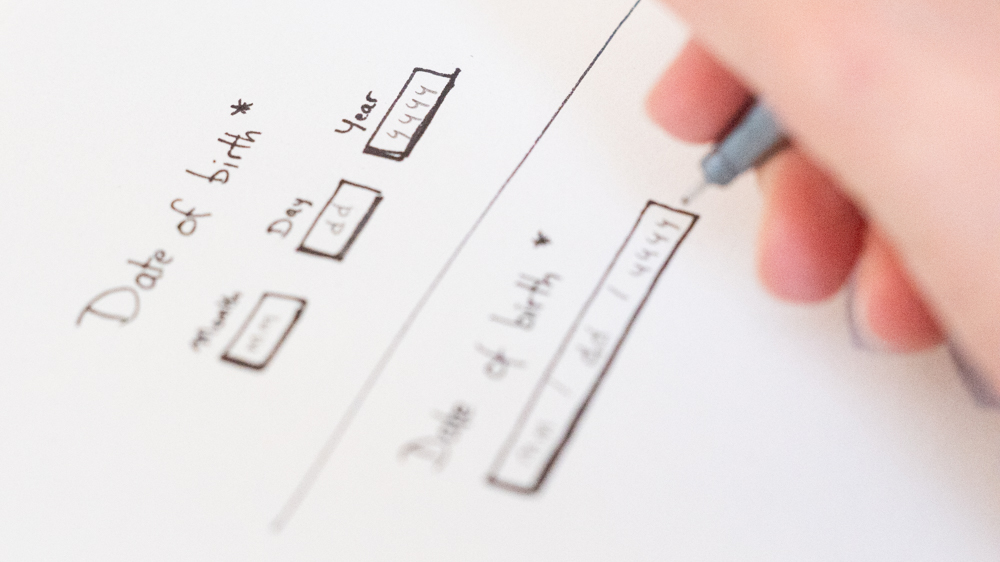 Date of birth *
Month Day Year
mm dd yyyy
Date of birth *
mm / dd / yyyy